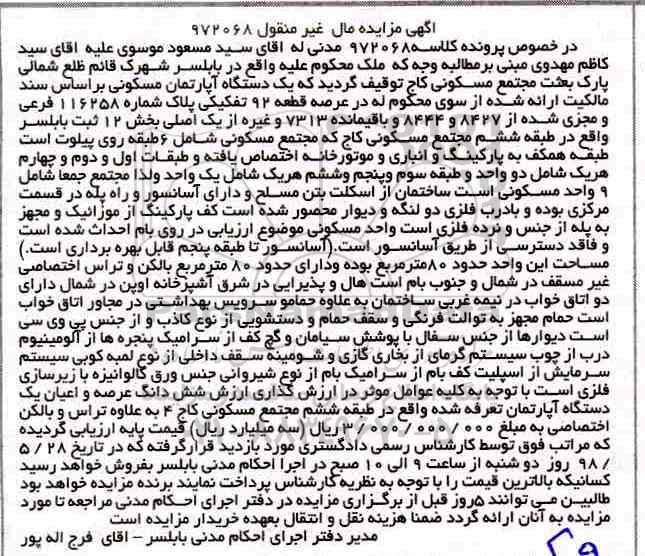 آگهی مزایده مال غیر منقول ۹۷۲۰۶۸
در خصوص پرونده کلاسه ۹۷۲۰۶۸ مدنی له آقای سید مسعود موسوی علیه آقای سید
کاظم مهدوی مبنی بر مطالبه وجه که ملک محکوم علیه واقع در بابلسر شهرک قائم ظلع شمالی
پارک بعثت مجتمع مسکونی کاج توقیف گردید که یک دستگاه آپارتمان مسکونی براساس سند
مالکیت ارائه شده از سوی محکوم له در عرصه قطعه ۹۲ تفکیکی پلاک شماره ۱۱۶۲۵۸ فرعی
و مجزی شده از ۸۴۲۷ و ۸۴۴۴ و باقیمانده ۷۳۱۳ و غیره از یک اصلی بخش ۱۲ ثبت بابلسر
واقع در طبقه ششم مجتمع مسکونی کاج که مجتمع مسکونی شامل ۶طبقه روی پیلوت است
طبقه همکف به پارکینگ و انباری و موتورخانه اختصاص یافته و طبقات اول و دوم و چهارم
هریک شامل دو واحد و طبقه سوم وپنجم وششم هریک شامل یک واحد ولذا مجتمع جمعا شامل
۹ واحد مسکونی است ساختمان از اسکلت بتن مسلح و دارای آسانسور و راه پله در قسمت
مرکزی بوده و بادرب فلزی دو لنگه و دیوار محصور شده است کف پارکینگ از موزائیک و مجهز
به پله از جنس و نرده فلزی است واحد مسکونی موضوع ارزیابی در روی بام احداث شده است
و فاقد دسترسی از طریق آسانسور است.(آسانسور تا طبقه پنجم قابل بهره برداری است.)
مساحت این واحد حدود ۸۰مترمربع بوده ودارای حدود ۸۰ مترمربع بالکن و تراس اختصاصی
غیر مسقف در شمال و جنوب بام است هال و پذیرایی در شرق آشپزخانه اوپن در شمال دارای
دو اتاق خواب در نیمه غربی ساختمان به علاوه حمامو سرویس بهداشتی در مجاور اتاق خواب
است حمام مجهز به توالت فرنگی و سقف حمام و دستشویی از نوع کاذب و از جنس پی وی سی
است دیوارها از جنس سفال با پوشش سیامان و گچ کف از سرامیک پنجره ها از آلومینیوم
درب از چوب سیستم گرمای از بخاری گازی و شومینه سقف داخلی از نوع لمبه کوبی سیستم
سرمایش از اسپلیت کف بام از سرامیک بام از نوع شیروانی جنس ورق گالوانیزه با زیرسازی
فلزی است با توجه به کلیه عوامل موثر در ارزش گذاری ارزش شش دانگ عرصه و اعیان یک
دستگاه آپارتمان تعرفه شده واقع در طبقه ششم مجتمع مسکونی کاج ۴ به علاوه تراس و بالکن
اختصاصی به مبلغ ۳/۰۰۰/۰۰۰/۰۰۰ ریال (سه میلیارد ریال) قیمت پایه ارزیابی گردیده
که مراتب فوق توسط کارشناس رسمی دادگستری مورد بازدید قرارگرفته که در تاریخ ۲۸ / ۵
/ ۹۸ روز دو شنبه از ساعت ۹ الی ۱۰ صبح در اجرا احکام مدنی بابلسر بفروش خواهد رسید
کسانیکه بالاترین قیمت را با توجه به نظریه کارشناس پرداخت نمایند برنده مزایده خواهد بود
طالبین می توانند ۵روز قبل از برگزاری مزایده در دفتر اجرای احکام مدنی مراجعه تا مورد
مزایده به آنان ارائه گردد ضمنا هزینه نقل و انتقال بعهده خریدار مزایده است
مدیر دفتر اجرای احکام مدنی بابلسر - آقای فرج اله پور